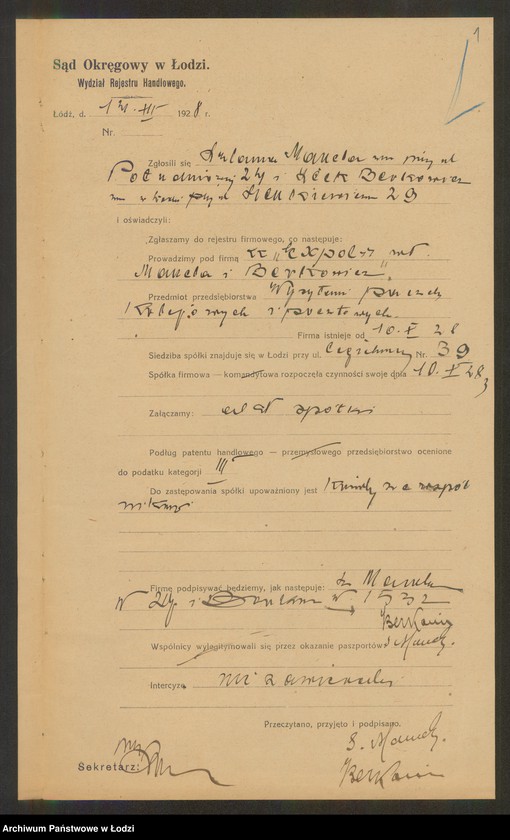 1
Sąd Okręgowy w Łodzi.
Wydział Rejestru Handlowego.
Łódź, d. 1928 r.
Nr.
Zgłosili się Manela zam przy ul
Południowej 24 i Berkowicz
zam w Łodzi przy ul Sienkiewicza 29
i oświadczyli:
Zgłaszamy do rejestru firmowego, co następuje:
Prowadzimy pod firmą "Expol"
Manela i Berkowicz"
Przedmiot przedsiębiorstwa Wysyłanie paczek
Kolejowych i pocztowych.
Firma istnieje od 10. X 28
Siedziba spółki znajduje się w Łodzi przy ul. Nr. 39
Spółka firmowa — komandytowa rozpoczęła czynności swoje dnia 10. X 28
Załączamy: akt spółki
Podług patentu handlowego — przemysłowego przedsiębiorstwo ocenione
do podatku kategorji III
Do zastępowania spółki upoważniony jest Każdy ze wspól
ników
Firmę podpisywać będziemy, jak następuje: Manela
Berkowicz
Wspólnicy wylegitymowali się przez okazanie paszportów
Intercyzę nie zawierali
Przeczytano, przyjęto i podpisano.
S. Manela
Sekretarz:
Berkowicz
Archiwum Państwowe w Łodzi